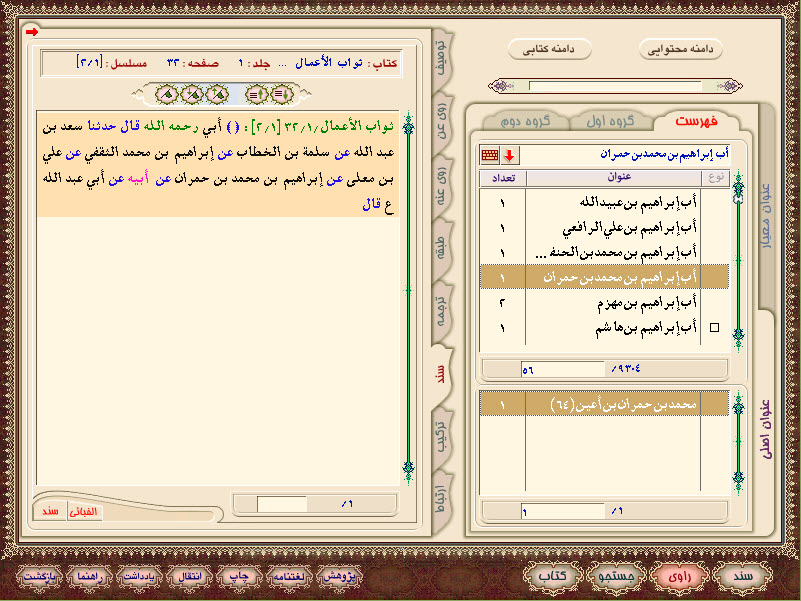 دامنه محتوایی
دامنه کتابی
فهرست
گروه اول
گروه دوم
أب إبراهیم بن محمد بن حمران
نوع
عنوان
تعداد
أب إبراهیم بن عبیدالله
١
أب إبراهیم بن علي الرافعي
١
أب إبراهیم بن محمد بن الحنفـ ...
١
أب إبراهیم بن محمد بن حمران
١
أب إبراهیم بن مهزم
٢
أب إبراهیم بن هاشم
١
/٩٣٠٤
٥٦
محمد بن حمران بن أعین (٦٤)
١
/١
١
عنوان معیار
عنوان اصلی
کتاب: ثواب الأعمال ... جلد: ١ صفحه: ٣٢ مسلسل: [٢/١]
ثواب الأعمال/١/٣٢ [٢/١]: ( ) أبي رحمه الله قال حدثنا سعد بن
عبد الله عن سلمة بن الخطاب عن إبراهیم بن محمد الثقفي عن علي
بن معلى عن إبراهیم بن محمد بن حمران عن أبیه عن أبي عبد الله
ع قال
توصیف
روی عن
روی عنه
طبقه
ترجمه
سند
ترکیب
ارتباط
/١
الفبائی
سند
سند
راوی
جستجو
کتاب
پژوهش
لغتنامه
چاپ
انتقال
یادداشت
راهنما
بازگشت